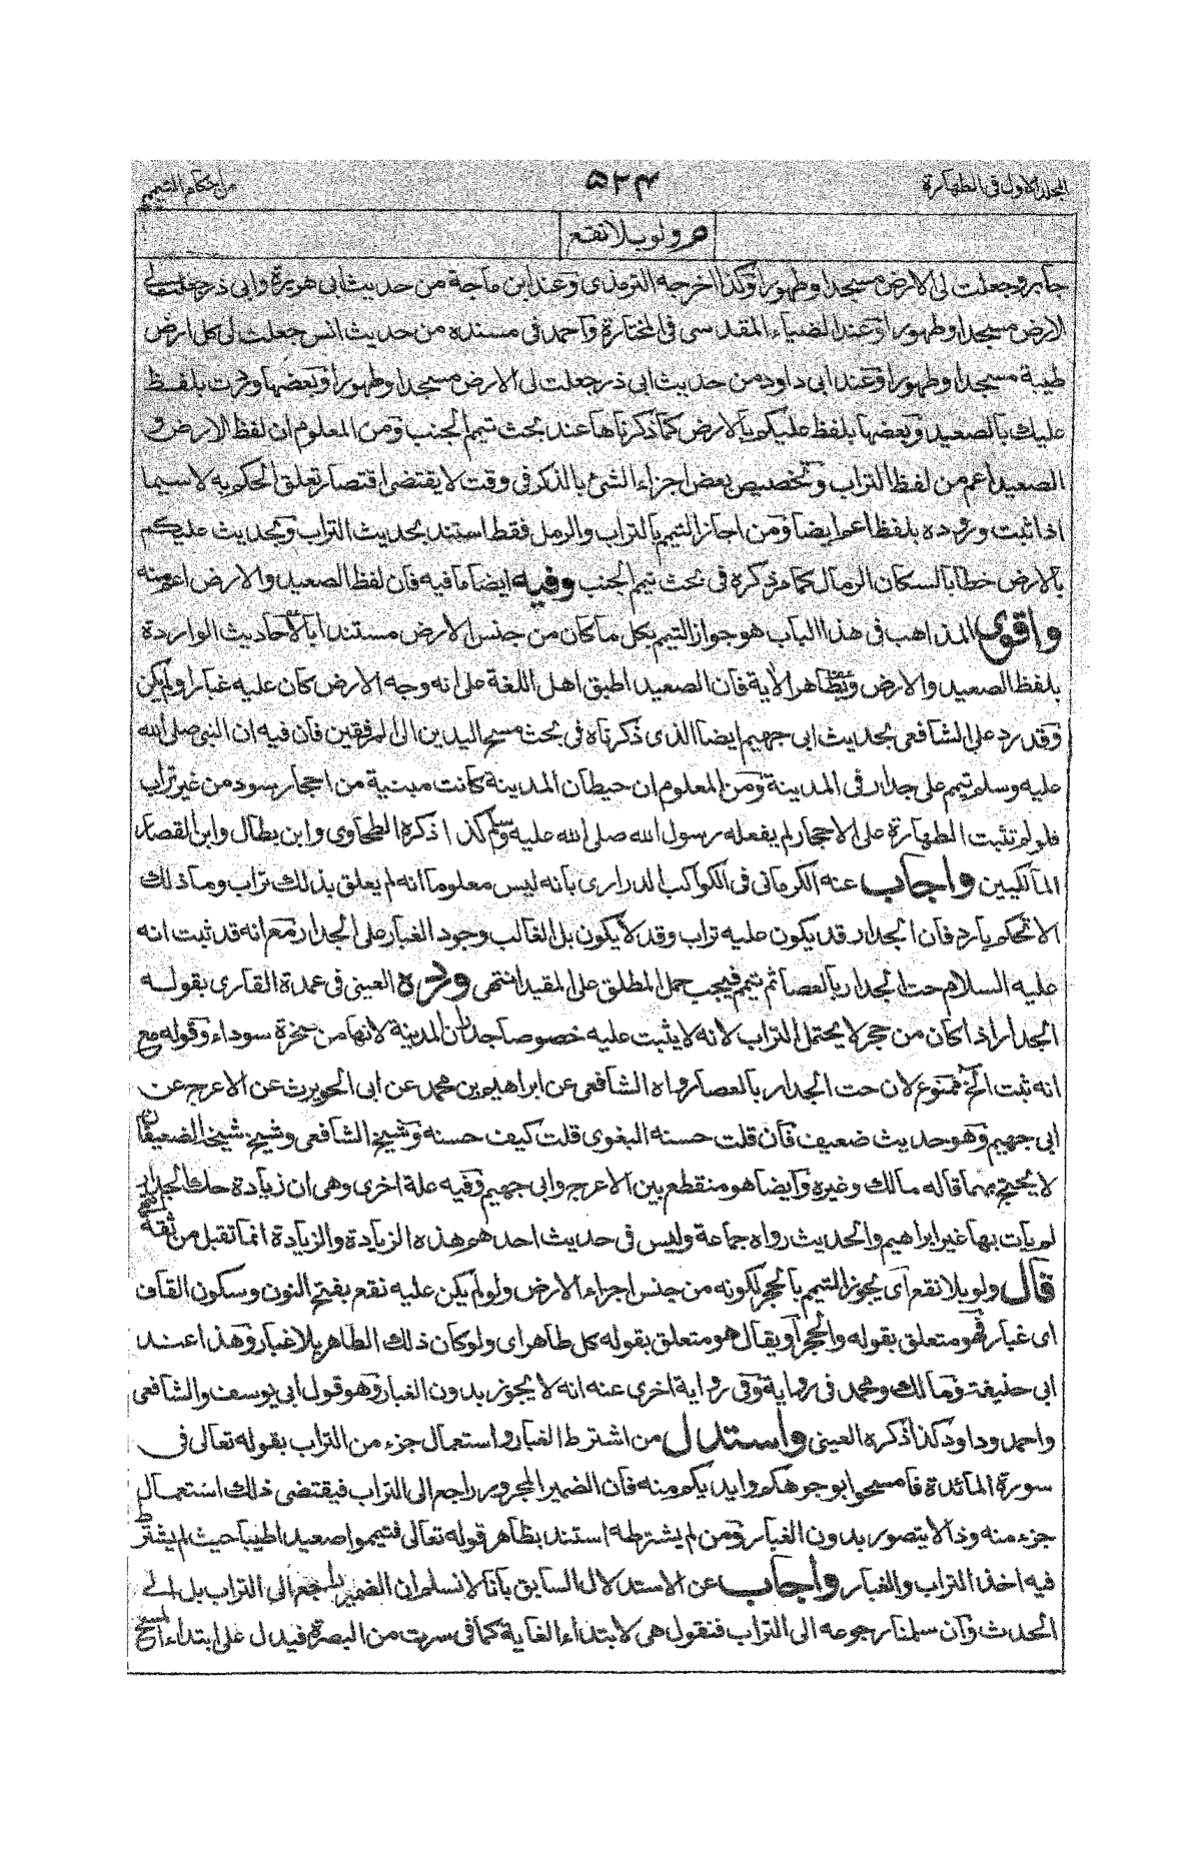 المجلد الاول فى الطهارة
۵۲۴
من احكام التيمم
ص ولو بلا نقع
جابر وجعلت لى الارض مسجدا وطهورا وكذا اخرجه الترمذى وعند ابن ماجة من حديث ابى هريرة وابى ذر جعلت لى
الارض مسجدا وطهورا وعند الضياء المقدسى فى المختارة واحمد فى مسنده من حديث انس جعلت لى كل ارض
طيبة مسجدا وطهورا وعند ابى داود من حديث ابى ذر جعلت لى الارض مسجدا وطهورا وبعضها وردت بلفظ
عليك بالصعيد وبعضها بلفظ عليكم بالارض كما ذكرناها عند بحث تيمم الجنب ومن المعلوم ان لفظ الارض و
الصعيد اعم من لفظ التراب وتخصيص بعض اجزاء الشئ بالذكر فى وقت لا يقتضى اقتصار تعلق الحكم به لا سيما
اذا ثبت وروده بلفظ اعم ايضا ومن اجاز التيمم بالتراب والرمل فقط استند بحديث التراب وبحديث عليكم
بالارض خطابا لسكان الرمال كما مر ذكره فى بحث تيمم الجنب وفيه ايضا ما فيه فان لفظ الصعيد والارض اعم منه
واقوى المذاهب فى هذا الباب هو جواز التيمم بكل ما كان من جنس الارض مستندا بالاحاديث الواردة
بلفظ الصعيد والارض وبظاهر الآية فان الصعيد اطبق اهل اللغة على انه وجه الارض كان عليه غبار اولم يكن
وقد رد على الشافعى بحديث ابى جهيم ايضا الذى ذكرناه فى بحث مسح اليدين الى المرفقين فان فيه ان النبى صلى الله
عليه وسلم تيمم على جدار فى المدينة ومن المعلوم ان حيطان المدينة كانت مبنية من احجار سود من غير تراب
فلو لم تثبت الطهارة على الاحجار لم يفعله رسول الله صلى الله عليه وسلم كذا ذكره الطحاوى وابن بطال وابن القصار
المالكيين واجاب عنه الكرمانى فى الكواكب الدرارى بانه ليس معلوما انه لم يعلق بذلك تراب وما ذلك
الا تحكم بارد فان الجدار قد يكون عليه تراب وقد لا يكون بل الغالب وجود الغبار على الجدار مع انه قد ثبت انه
عليه السلام حت الجدار بالعصا ثم تيمم فيجب حمل المطلق على المقيد انتهى ورده العينى فى عمدة القارى بقوله
الجدار اذا كان من حجر لا يحتمل التراب لانه لا يثبت عليه خصوصا جدران المدينة لانها من صخرة سوداء وقوله مع
انه ثبت الخ ممنوع لان حت الجدار بالعصا رواه الشافعى عن ابراهيم بن محمد عن ابى الحويرث عن الاعرج عن
ابى جهيم وهو حديث ضعيف فان قلت حسنه البغوى قلت كيف حسنه وشيخ الشافعى وشيخ شيخه ضعيفان
لا يحتج بهما قاله مالك وغيره وايضا هو منقطع بين الاعرج وابى جهيم وفيه علة اخرى وهى ان زيادة حك الجدار
لم يات بها غير ابراهيم والحديث رواه جماعة وليس فى حديث احدهم هذه الزيادة والزيادة انما تقبل من ثقة انتهى
قال ولو بلا نقع اى يجوز التيمم بالحجر لكونه من جنس اجزاء الارض ولو لم يكن عليه نقع بفتح النون وسكون القاف
اى غبار فهو متعلق بقوله والحجر او يقال هو متعلق بقوله كل طاهر اى ولو كان ذلك الطاهر بلا غبار وهذا عند
ابى حنيفة ومالك ومحمد فى رواية وفى رواية اخرى عنه انه لا يجوز بدون الغبار وهو قول ابى يوسف والشافعى
واحمد وداود كذا ذكره العينى واستدل من اشترط الغبار واستعمال جزء من التراب بقوله تعالى فى
سورة المائدة فامسحوا بوجوهكم وايديكم منه فان الضمير المجرور راجع الى التراب فيقتضى ذلك استعمال
جزء منه وذا لا يتصور بدون الغبار ومن لم يشترطه استند بظاهر قوله تعالى فتيمموا صعيدا طيبا حيث لم يشترط
فيه اخذ التراب والغبار واجاب عن الاستدلال السابق بانا لا نسلم ان الضمير راجع الى التراب بل الى
الحدث وان سلمنا رجوعه الى التراب فنقول هى لابتداء الغاية كما فى سرت من البصرة فيدل على ابتداء المسح